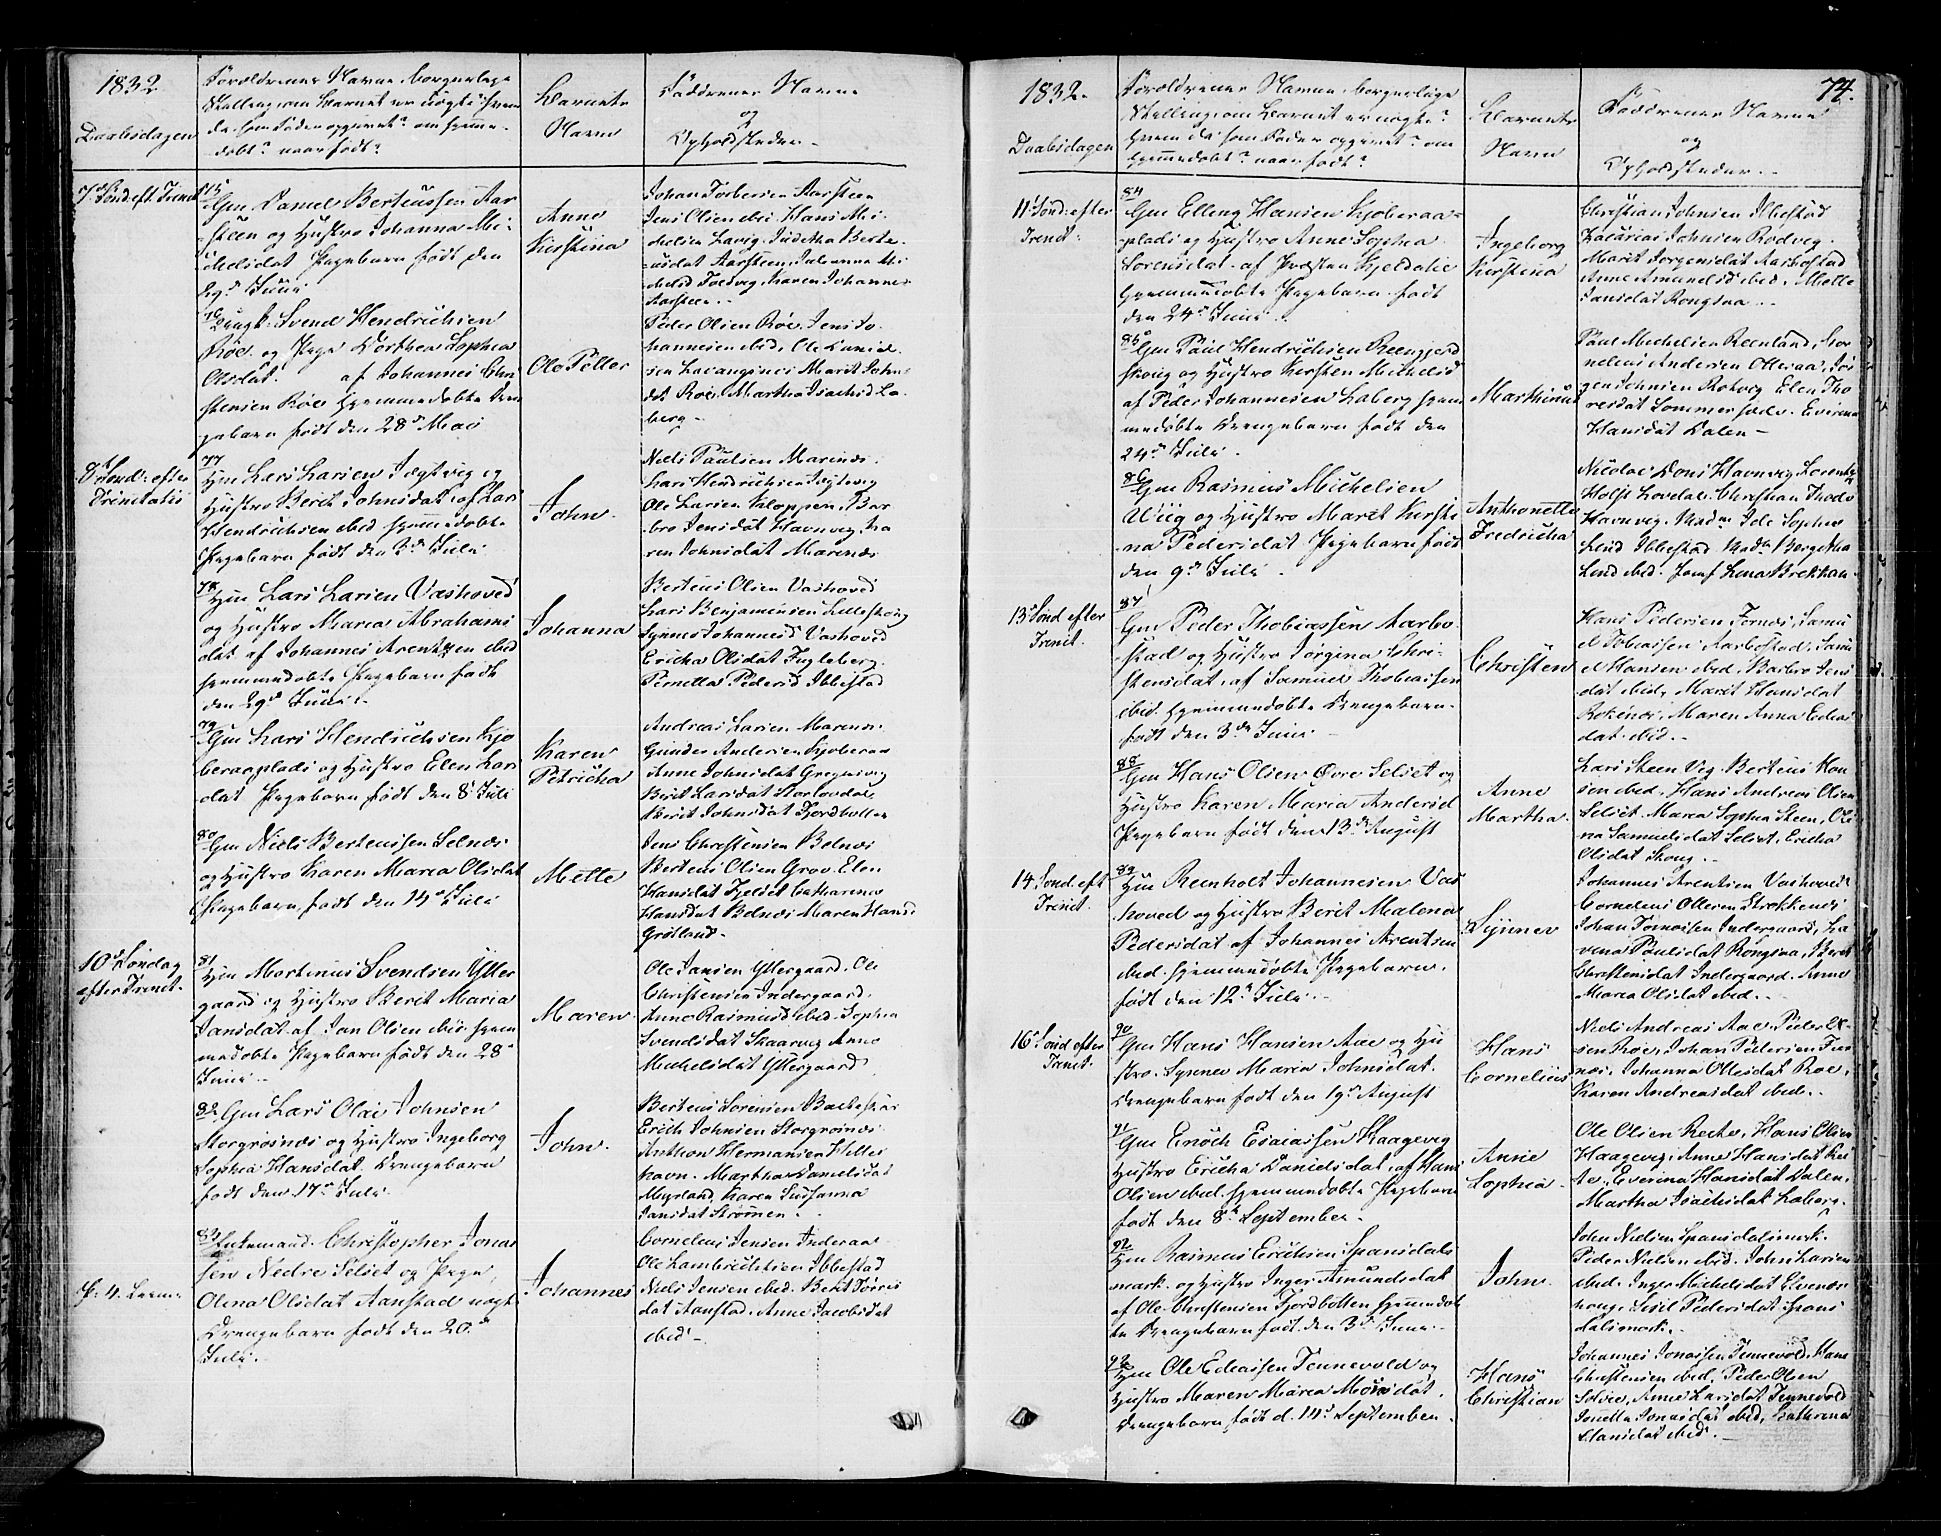 1832
Forældrenes Navne borgerlige
Stilling, om Barnet er uægte? hvem
da som Fader opgivet? om hjemme-
døbt? naar født?
Daabsdagen
Barnets
Navn
Faddrenes Navne
og
Opholdsteder
7de Sønd. eft. Trinit
75
Gm Daniel Berteussen Aar-
steen og Hustro Johanna Mi-
chelsdat Pigebarn født den
Juni
Anne
Kirstina
Johan Torbersen Aarsteen
Jens Olsen ibid Hans Mi-
chelsen Lavig. Juditha Berte-
usdat Aarsteen, Julianna Mi-
chelsd Toedvig, Karen Johannes
Aarsteen.
76
Ungk. Svend Hendrichsen
Røe og Pige Dorthea Sophia
Olsdat. af Johannes Chri
stensen Røe hjemmedøbte Dren
gebarn født den 28d Mai
Ole Petter
Peder Olsen Røe, Jens Jo-
hannesen ibid, Ole Daniel-
sen Lavangsnes Marit Johns
dt Røe, Martha Isachsd La-
berg
8de Sønd: efter
Trinitatis
77
Gm Lars Larsen Jægtvig og
Hustro Berit Johnsdat af Lars
Hendrichsen ibid hjemmedøbte
Pigebarn født den 3de Juli
John.
Niels Paulsen Marenæs.
Lars Hendrichsen Jægtvig
Ole Larsen Kloppen, Bar
bro Jensdat Havnvig, Ka
ren Johnsdat Marenæs
78
Gm Lars Larsen Vashoved
og Hustro Maria Abrahams
dat af Johannes Arentsen ibid
hjemmedøbte Pigebarn født
den 29d Juni.
Johanna
Berteus Olsen Vashoved
Lars Benjaminsen Lilleskog
Synnev Johannesd Vashoved
Ericha Olsdat Fugleberg.
Pernella Pedersd Ibbestad
79
Gm Lars Hendrichsen Kjo
beraaplads og Hustro Elen Lars
dat Pigebarn født den 8d Juli
Karen
Petricha
Andreas Larsen Marenæs.
Gunder Andersen Kjoberaa
Anne Johnsdat Gregusvig
Berit Larsdat Storlovdal
Berit Johnsdat Fjordbotten
80
Gm Niels Berteussen Selnæs
og Hustro Karen Maria Olsdat
Pigebarn født den 14d Juli
Mette
Jens Christensen Belnæs
Berteus Olsen Grov Elen
Hansdat Fjelset Catharina
Hansdat Belnæs Maren Hansd
Grotland.
10de Søndag
efter Trinit.
81
Gm Mortinus Svendsen Ytter
gaard og Hustro Berit Maria
Jansdat af Jan Olsen ibid. hjem
medøbte Pigebarn født den 28d
Juni
Maren
Ole Jansen Yttergaard, Ole
Christensen Indergaard,
Anne Rasmusd ibid. Sophia
Svendsdat Skaarvig Anne
Michelsdat Yttergaard
82. Gm Lars Olai Johnsen
Storgrøsnæs og Hustro Ingeborg
Sophia Hansdat. Drengebarn
født den 17d Juli
John.
Berteus Sorensen
Erich Johnsen Storgrøsnæs.
Anthon Hermansen Helle
havn. Martha Danielsdat
Myrland, Karen Susanna
Jansdat Strømmen.
83
Enkemand Christopher Jonas
sen Nedre Selset og Pige,
Olina Olsdat Aanstad uægte
Drengebarn født den 20d
Juli.
Johannes
Cornelius Jensen Inderaa
Ole Lambrichtsen Ibbestad
Niels Jensen ibid. Berit Torris
dat Aanstad. Anne Jacobsdat
ibid
1832.
Daabsdagen
Forældrenes Navne, borgerlige
Stilling; om Barnet er uægte?
hvem da som Fader opgivet? om
hjemmedøbt? naar født?
Barnets
Navn
Faddrenes Navne
og
Opholdsteder.
74.
11 Sønd: efter
Trinit.
84
Gm Elling Hansen Kjoberaa-
plads og Hustro Anne Sophia
Sorensdat. af Præsten Kjeldalie
hjemmedøbte Pigebarn. født
den 24d Juni.
Ingeborg
Kirstina
Christian Johnsen Ibbestad
Zacarias Johnsen Rodvig.
Marit Jorgensdat Aarbostad
Anne Amundsd ibid. Mette
Jansdat Rongsaa.
85
Gm Paul Hendrichsen Reengjerd
skoug og Hustro Kirsten Michelsd
af Peder Johannesen Laberg hjem
medøbte Drengebarn født den
24d Juli.
Marthinus
Paul Michelsen Reenland, Cor
nelius Andersen Ollesaa, Jør
gen Johnsen Rotvig Elen Tho
resdat Sommersæde. Everina
Hansdat Dalen
86
Gm Rasmus Michelsen
Wiig og Hustro Maret Kirsti
na Pedersdat Pigebarn født
den 9d Juli
Anthonette
Fredricha
Nicolai Dons Havnvig, Lorentz
Holst Lovedal. Christian Thode
Havnvig. Madm Ide Sophie
Lind Ibbestad Madm Bergitha
Lind ibid. Jomf Lena Brekkan
13 Sønd efter
Trinit.
87
Gm Peder Thobiassen Aarbo-
stad og Hustro Jorgina Chri-
stensdat, af Samuel Thobiassen
ibid. hjemmedøbte Drengebarn.
født den 3de Juni
Christen
Hans Pedersen Fornæs, Samu
el Tobiassen Aarbostad, Samu
el Hansen ibid, Barbro Jens
dat ibid, Marit Hansdat
Rokenæs, Maren Anna Edias
dat. ibid.
88
Gm Hans Olsen Øvre Selset og
Hustro Karen Maria Andersd
Pigebarn født den 13de August
Anne
Martha.
Lars Steen Veg. Berteus Han
sen ibid, Hans Andreas Olsen
Selset. Maria Sophia Steen, Oli
na Samuelsdat Selset. Ericha
Olsdat Skoug.
14 Sønd. eft
Trinit.
89
Gm Reenholt Johannesen Vas
hoved og Hustro Berit Malena
Pedersdat af Johannes Arentsen
ibid. hjemmedøbte Pigebarn.
født den 12d Juli.
Synnev
Johannes Arentsen Vashoved
Cornelius Ollesen Strokkenæs
Johan Tornæsen Indergaard, La
vina Paulsdat Rongsaa, Berit
Christensdat Indergaard. Anne
Maria Olsdat ibid.
16 Sønd efter
Trinit.
90
Gm Hans Hansen Aae og Hu
stro. Synnev Maria Johnsdat.
Drengebarn født den 19d August
Hans
Cornelius
Niels Andreas Aae, Peder
sen Røe, Johan Pedersen For
næs, Johanna Ollesdat Røe,
Karen Andreasdat ibid.
91
Gm Enoch Esaiassen Haagevig
Hustro Ericha Danielsdat, af Hans
Olsen ibid. hjemmedøbte Pigebarn
født den 8d September.
Anne
Sophia.
Ole Olsen Rette, Hans Olsen
Haagevig, Anne Hansdat Ret
te, Everina Hansdat Dalen,
Martha Isachsdat Laberg.
92
Gm Rasmus Erichsen Spansdals
mark. og Hustro Inger Amundsdat
af Ole Christensen Fjordbotten hjemmedøb
te Drengebarn født den 3d Juni.
John
John Nielsen Spansdalsmark.
Peder Nielsen ibid. John Larsen
ibid. Inger Michelsdat Elvenes
houg. Sisil Pedersdat Spans
dalsmark.
93
Gm Ole Ediassen Tennevold og
Hustro Maren Maria Monsdat
Drengebarn født d. 14d September
Hans
Christian
Johannes Jonassen Tennevold, Hans
Christensen ibid, Peder Olsen
Anne Larsdat Tennevold
Jonetta Jonasdat ibid, Cathrina
Hansdat ibid.